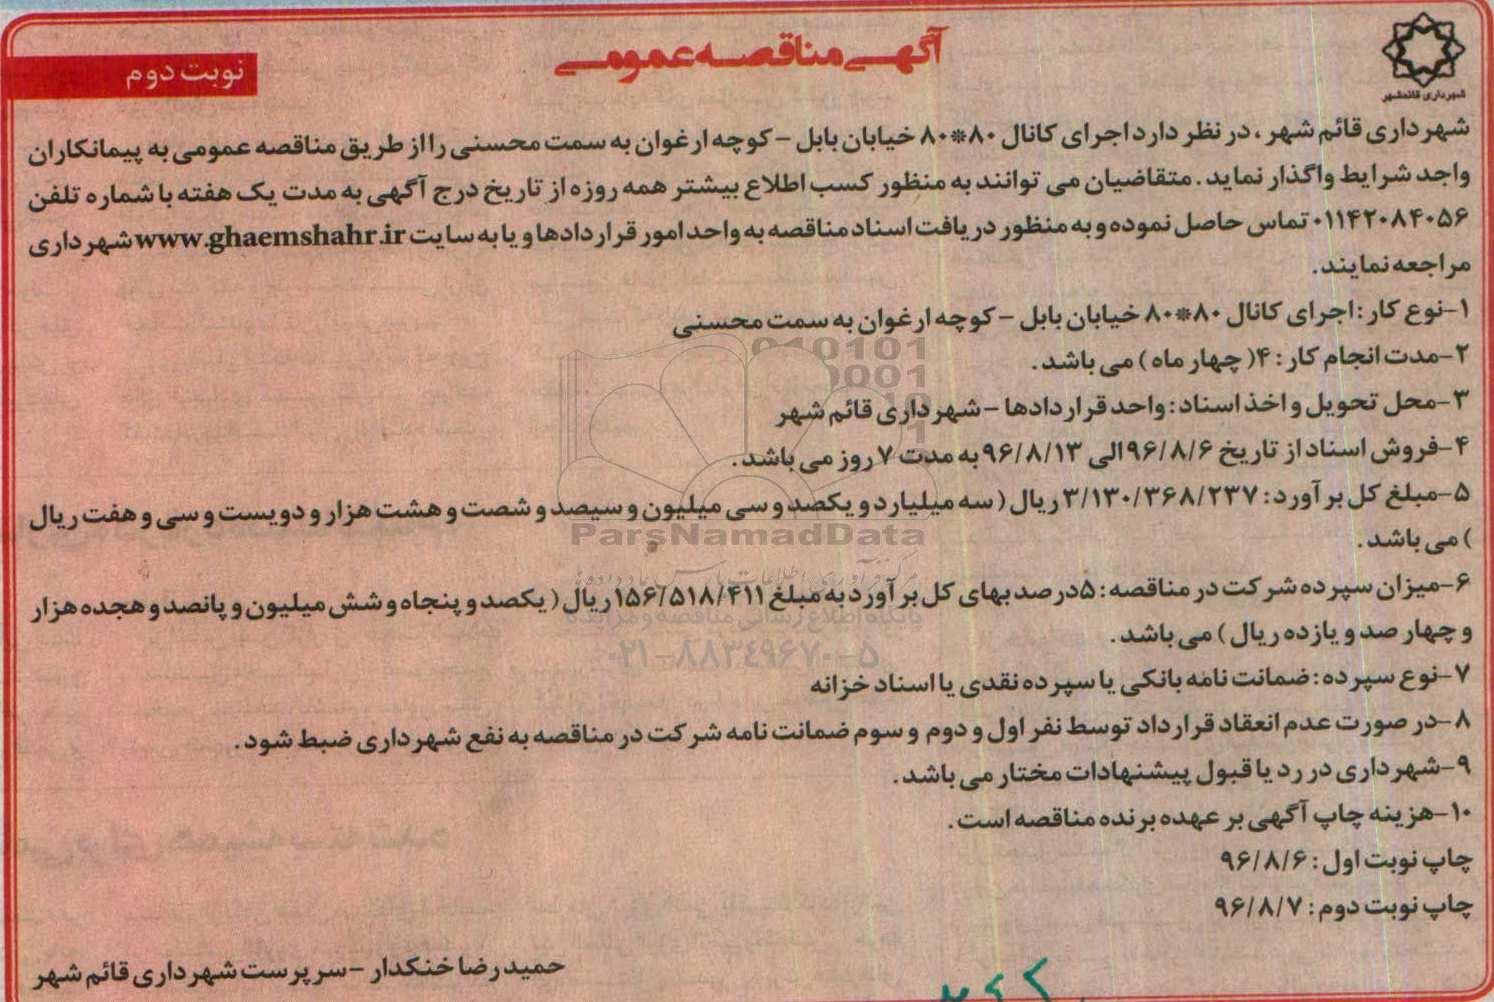 آگهی مناقصه عمومی
نوبت دوم
شهرداری قائمشهر
شهرداری قائم شهر ، در نظر دارد اجرای کانال ۸۰*۸۰ خیابان بابل – کوچه ارغوان به سمت محسنی را از طریق مناقصه عمومی به پیمانکاران
واجد شرایط واگذار نماید . متقاضیان می توانند به منظور کسب اطلاع بیشتر همه روزه از تاریخ درج آگهی به مدت یک هفته با شماره تلفن
۰۱۱۴۲۰۸۴۰۵۶ تماس حاصل نموده و به منظور دریافت اسناد مناقصه به واحد امور قراردادها و یا به سایت www.ghaemshahr.ir شهرداری
مراجعه نمایند.
۱-نوع کار : اجرای کانال ۸۰*۸۰ خیابان بابل – کوچه ارغوان به سمت محسنی
۲-مدت انجام کار : ۴( چهار ماه ) می باشد .
۳-محل تحویل و اخذ اسناد : واحد قراردادها – شهرداری قائم شهر
۴-فروش اسناد از تاریخ ۹۶/۸/۶ الی ۹۶/۸/۱۳ به مدت ۷ روز می باشد .
۵-مبلغ کل برآورد : ۳/۱۳۰/۳۶۸/۲۳۷ ریال ( سه میلیارد و یکصد و سی میلیون و سیصد و شصت و هشت هزار و دویست و سی و هفت ریال
) می باشد .
۶-میزان سپرده شرکت در مناقصه : ۵درصد بهای کل برآورد به مبلغ ۱۵۶/۵۱۸/۴۱۱ ریال ( یکصد و پنجاه و شش میلیون و پانصد و هجده هزار
و چهار صد و یازده ریال ) می باشد .
۷-نوع سپرده : ضمانت نامه بانکی یا سپرده نقدی یا اسناد خزانه
۸-در صورت عدم انعقاد قرارداد توسط نفر اول و دوم و سوم ضمانت نامه شرکت در مناقصه به نفع شهرداری ضبط شود .
۹-شهرداری در رد یا قبول پیشنهادات مختار می باشد .
۱۰-هزینه چاپ آگهی بر عهده برنده مناقصه است .
چاپ نوبت اول : ۹۶/۸/۶
چاپ نوبت دوم : ۹۶/۸/۷
حمیدرضا خنکدار – سرپرست شهرداری قائم شهر
ParsNamadData
مرکز فرآوری اطلاعات پارس نماد داده ها
پایگاه اطلاع رسانی مناقصه و مزایده
۰۲۱-۸۸۳۴۹۶۷۰-۵